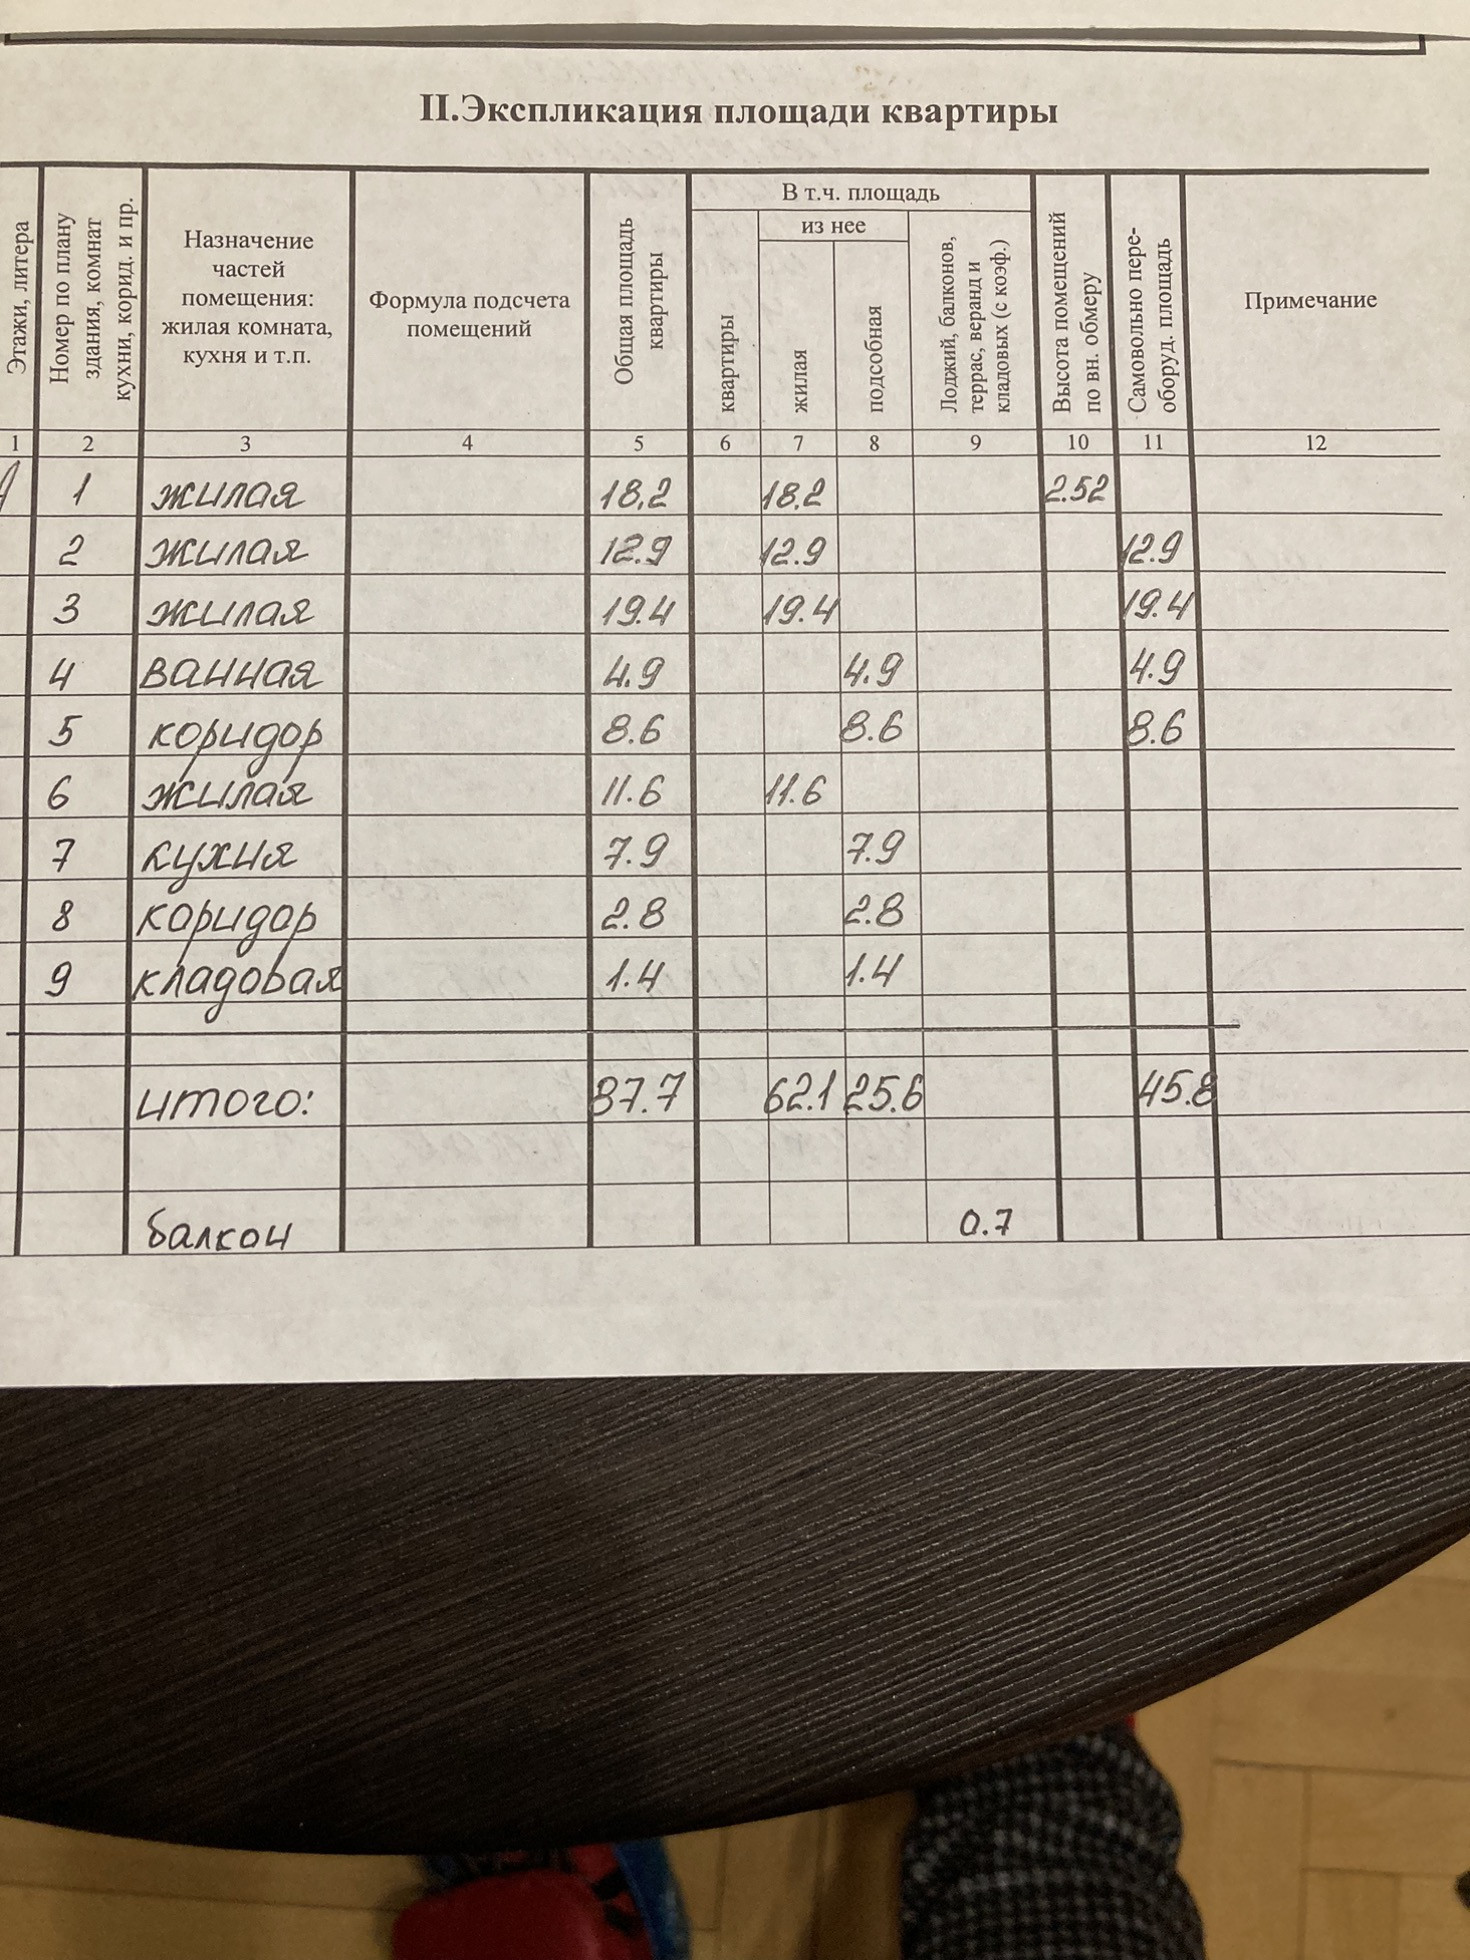 II.Экспликация площади квартиры
Этажи, литера
Номер по плану здания, комнат кухни, корид. и пр.
Назначение частей помещения: жилая комната, кухня и т.п.
Формула подсчета помещений
Общая площадь квартиры
В т.ч. площадь
из нее
квартиры
жилая
подсобная
Лоджий, балконов, террас, веранд и кладовых (с коэф.)
Высота помещений по вн. обмеру
Самовольно пере-оборуд. площадь
Примечание
1 2 3 4 5 6 7 8 9 10 11 12
1 жилая 18,2 18,2 2.52
2 жилая 12.9 12.9 12.9
3 жилая 19.4 19.4 19.4
4 ванная 4.9 4.9 4.9
5 коридор 8.6 8.6 8.6
6 жилая 11.6 11.6
7 кухня 7.9 7.9
8 коридор 2.8 2.8
9 кладовая 1.4 1.4
итого: 87.7 62.1 25.6 45.8
балкон 0.7